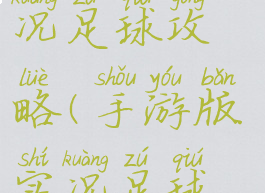 kuàng zú qiú gōng
况足球攻
lüè shǒu yóu bǎn
略(手游版
shí kuàng zú qiú
实况足球